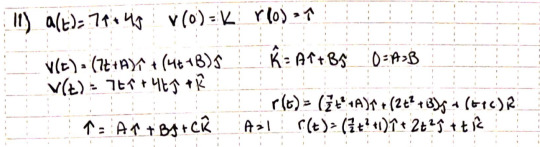 11) a(t)=7î+4ĵ v(0)=k̂ r(0)=î
v(t)=(7t+A)î+(4t+B)ĵ k̂=Aî+Bĵ 0=A=B
v(t)=7tî+4tĵ+k̂
r(t)=(7/2t²+A)î+(2t²+B)ĵ+(t+C)k̂
î=Aî+Bĵ+Ck̂ A=1 r(t)=(7/2t²+1)î+2t²ĵ+tk̂